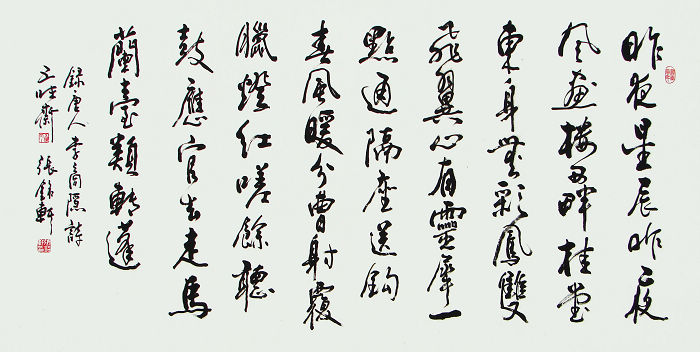 昨夜星辰昨夜
風畫樓西畔桂堂
東身無彩鳳雙
飛翼心有靈犀一
點通隔座送鈎
春風暖分曹射覆
臘鐙紅嗟餘聽
鼓應官去走馬
蘭臺類轉蓬
錄唐人李商隱詩
齋 張銘軒